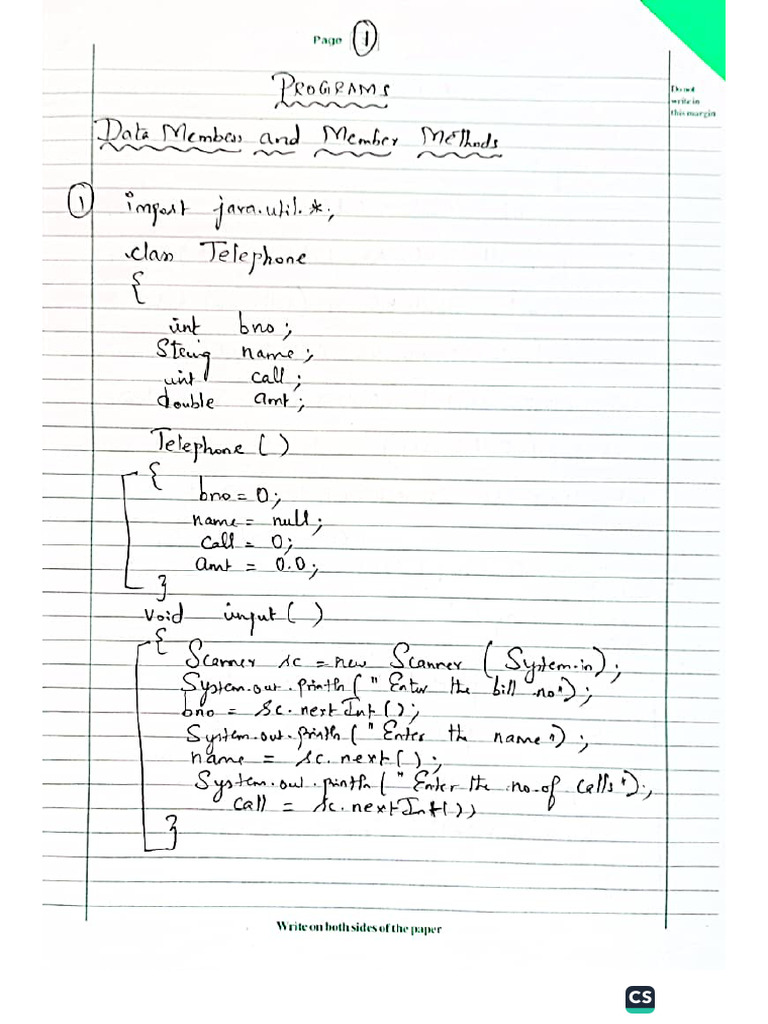 Page 1
PROGRAMS
Do not
write in
this margin
Data Members and Member Methods
1 import java.util.*;
class Telephone
{
int bno;
String name;
int call;
double amt;
Telephone ()
{
bno = 0;
name = null;
call = 0;
amt = 0.0;
}
void input ()
{
Scanner sc = new Scanner (System.in);
System.out.println ("Enter the bill no");
bno = sc.nextInt ();
System.out.println ("Enter the name");
name = sc.next ();
System.out.println ("Enter the no. of calls");
call = sc.nextInt();
}
Write on both sides of the paper
CS